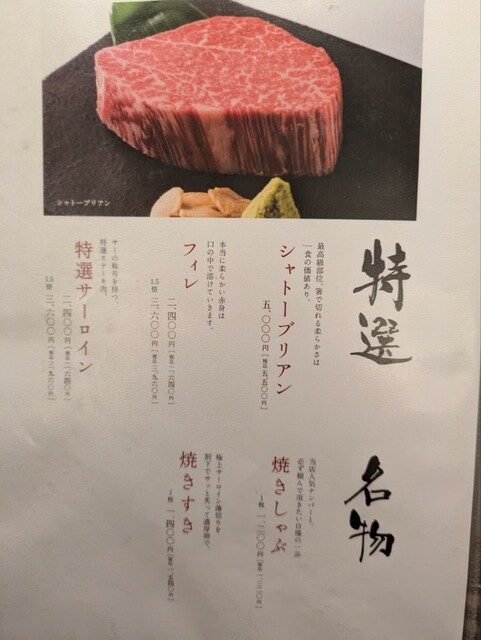 シャトーブリアン
特選
最高級部位。箸で切れる柔らかさは
一食の価値あり。
シャトーブリアン
五、〇〇〇円［税込五、五〇〇円］
本当に柔らかい赤身は
口の中で溶けていきます。
フィレ
二、四〇〇円［税込二、六四〇円］
1.5倍 三、六〇〇円［税込三、九六〇円］
サーの称号を持つ、
特選ステーキ肉。
特選サーロイン
二、四〇〇円［税込二、六四〇円］
1.5倍 三、六〇〇円［税込三、九六〇円］
名物
当店人気ナンバー1。
必ず頼んで頂きたい自慢の一品
焼きしゃぶ
1枚 一、二〇〇円［税込一、三二〇円］
極上サーロイン薄切りを
割下でサッと炙って濃厚卵で。
焼きすき
1枚 一、四〇〇円［税込一、五四〇円］